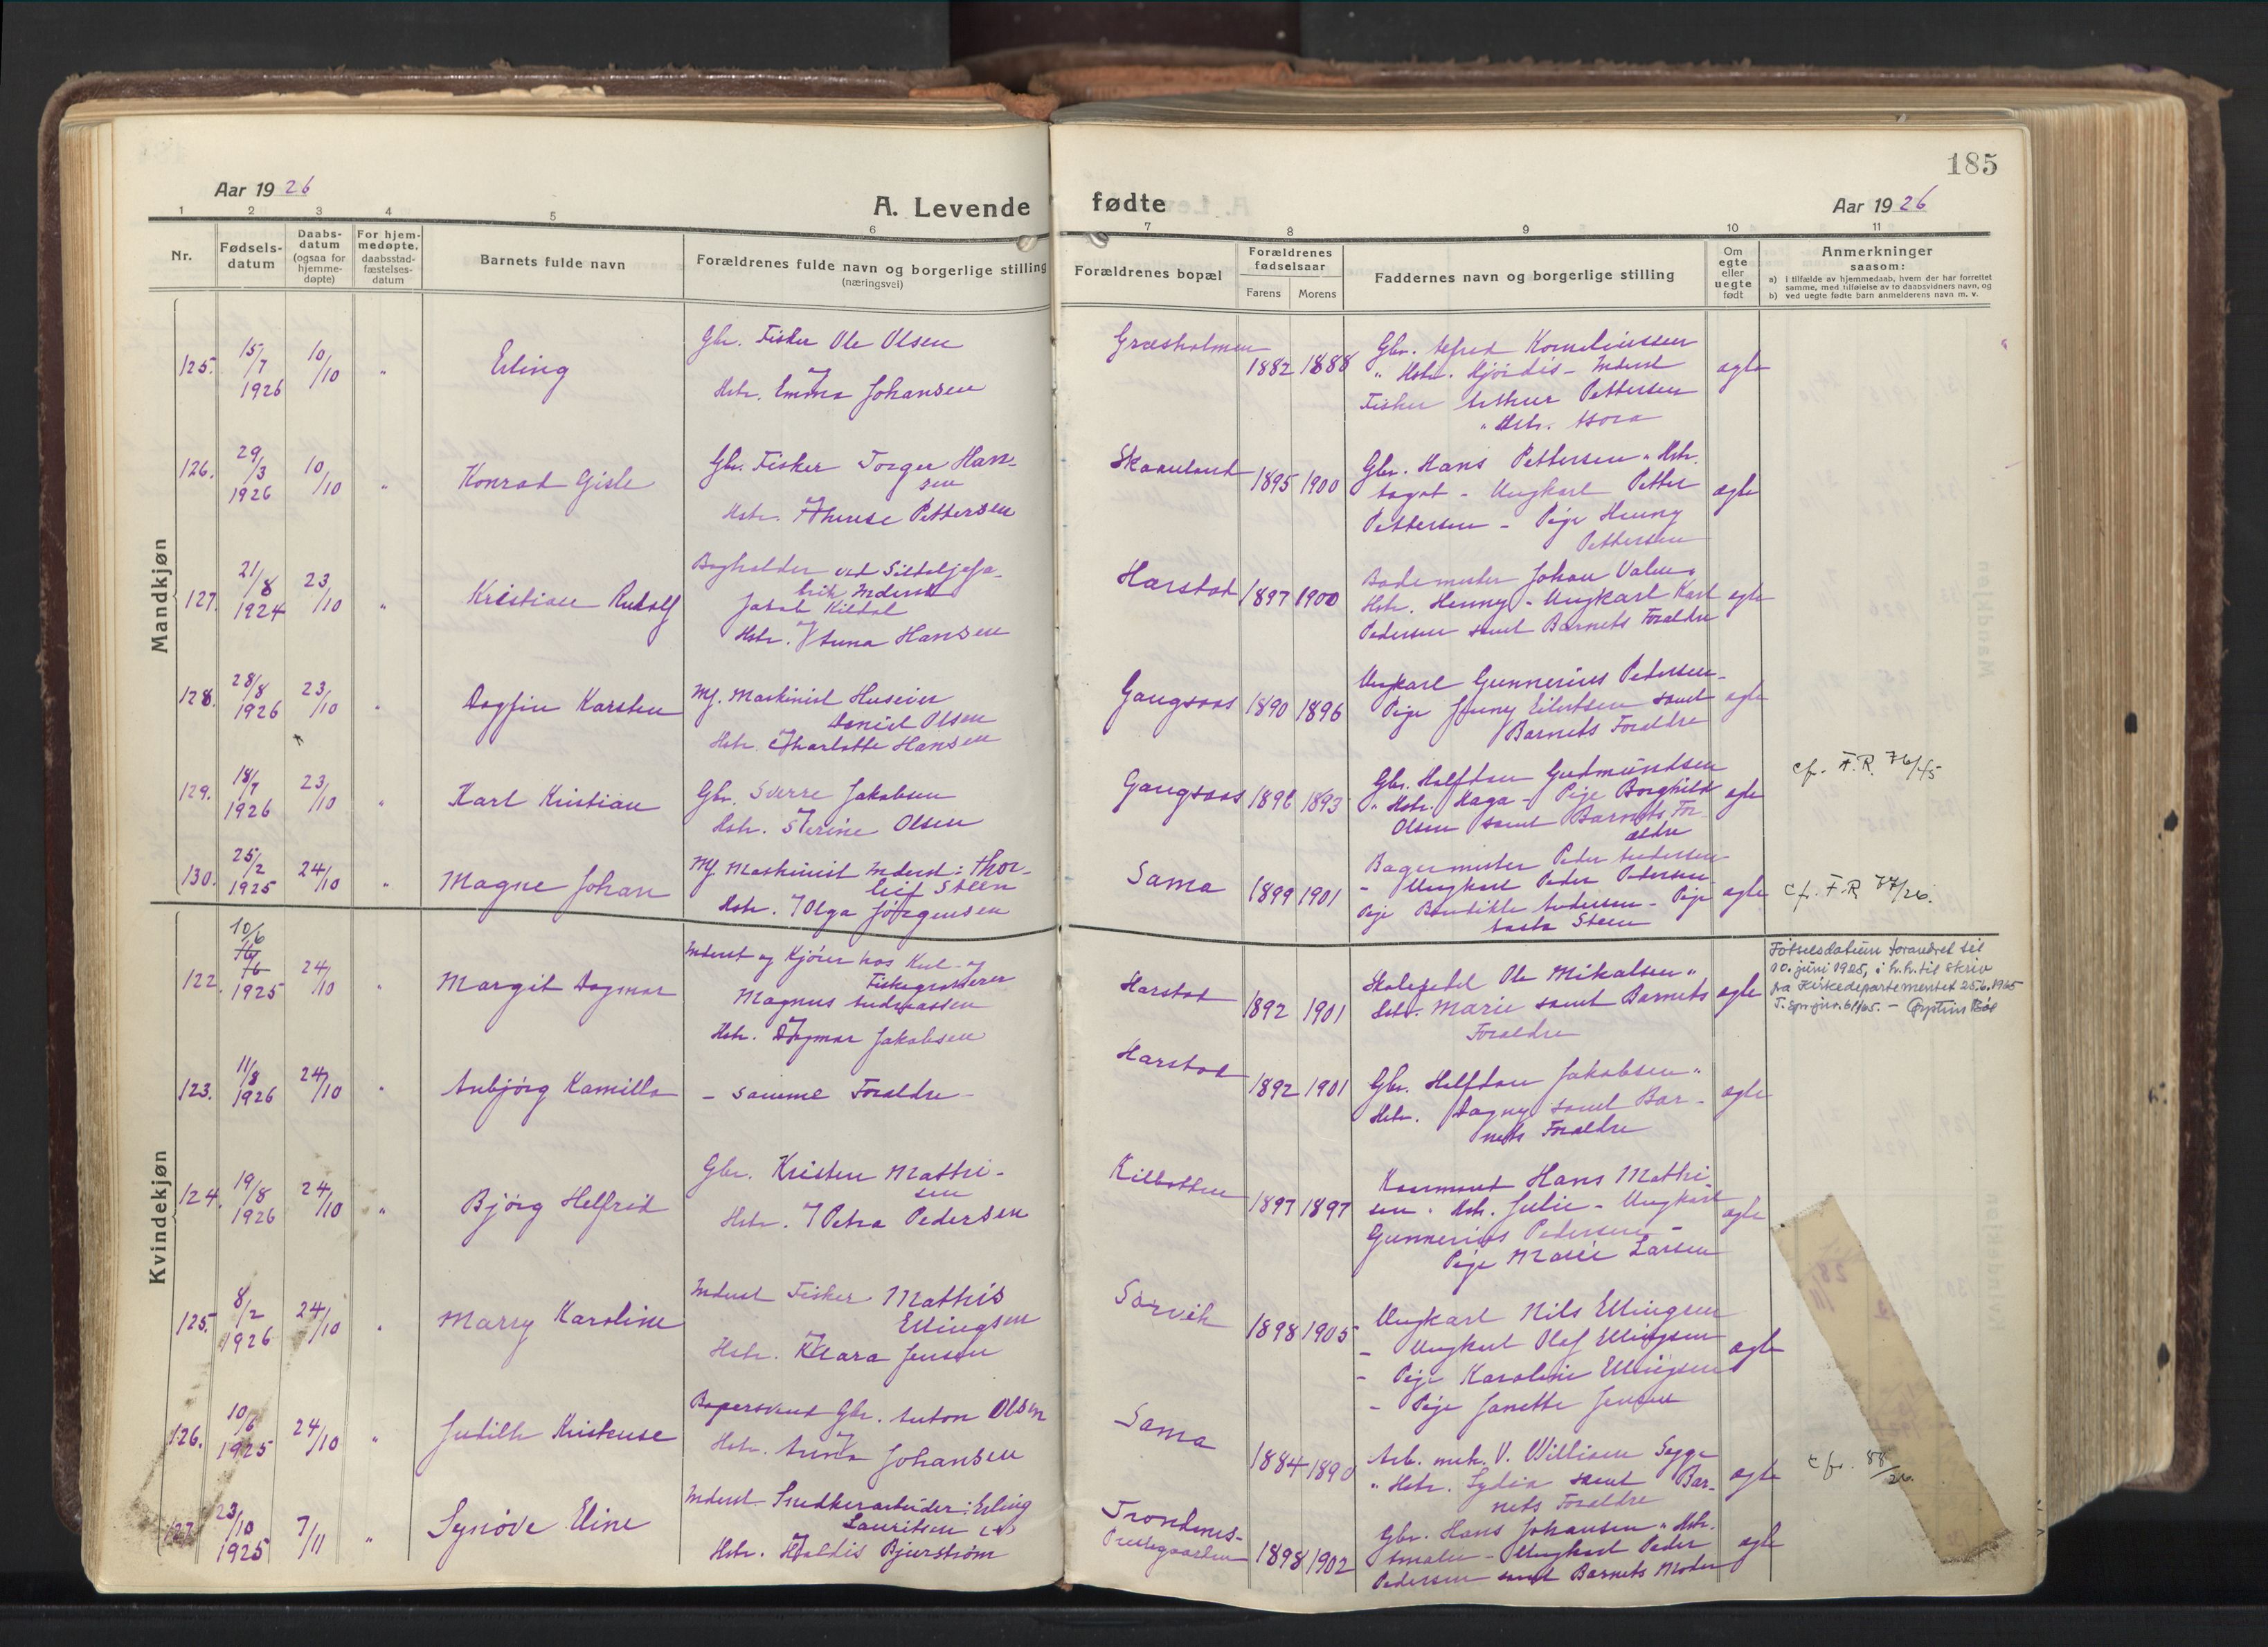 185
Aar 1926
A. Levende fødte
Aar 1926
1 2 3 4 5 6 7 8 9 10 11
Nr.
Fødsels-
datum
Daabs-
datum
(ogsaa for
hjemme-
døpte)
For hjem-
medøpte,
daabsstad-
fæstelses-
datum
Barnets fulde navn
Forældrenes fulde navn og borgerlige stilling
(næringsvei)
Forældrenes bopæl
Forældrenes
fødselsaar
Farens Morens
Faddernes navn og borgerlige stilling
Om
egte
eller
uegte
født
Anmerkninger
saasom:
a) i tilfælde av hjemmedaab, hvem der har forrettet
samme, med tilføielse av to daabsvidners navn, og
b) ved uegte fødte barn anmelderens navn m. v.
Mandkjøn
125. 15/7 1926 10/10 " Erling
Gbr. Fisker Ole Olsen
Hstr. Emma Johansen
Græsholmen 1882 1888
Gbr. Alfred Korneliussen
" Hstr. Hjørdis - Inderst
Fisker Arthur Pettersen
" Hstr. Asora
egte
126. 29/3 1926 10/10 " Konrad Gisle
Gbr. Fisker Torger Han-
sen
Hstr. Theruse Pettersen
Skaanland 1895 1900
Gbr. Hans Pettersen " Hstr.
Aagot - Ungkarl Petter
Pettersen - Pige Henny
Pettersen
egte
127. 21/8 1924 23/10 " Kristian Rudolf
Bogholder ved Sildoljefa-
brik Inderst
Jakob Kildal
Hstr. Anna Hansen
Harstad 1897 1900
Bademester Johan Valen "
Hstr. Henny - Ungkarl Karl
Pedersen samt Barnets Foraldre
egte
128. 28/8 1926 23/10 " Dagfin Karsten
Mf. Maskinist Huseier
Daniel Olsen
Hstr. Charlotte Hansen
Gangsaas 1890 1896
Ungkarl Gunnerius Pedersen -
Pige Jenny Eilertsen samt
Barnets Foraldre
egte
129. 18/7 1926 23/10 " Karl Kristian
Gbr. Sverre Jakobsen
Hstr. Serine Olsen
Gangsaas 1896 1893
Gbr. Halfdan Gudmundsen
" Hstr. Haga - Pige Borghild
Olsen samt Barnets For-
ældre
egte
cfr. F.R. 76/45
130. 25/2 1925 24/10 " Magne Johan
Mf. Maskinist Inderst: Thor-
leif Steen
Hstr. Olga Jørgensen
Sama 1899 1901
Bagermester Peder Andersen
- Ungkarl Peder Pedersen
Pige Bendikte Andersen - Pige
Aasta Steen
egte
cfr. F.R. 77/26.
Kvindekjøn
122. 10/6 1925 24/10 " Margit Dagmar
Inderst og Kjører hos Kul- og
Fiskegrosserer
Magnus Andreassen
Hstr. Dagmar Jakobsen
Harstad 1892 1901
Skolepedel Ole Mikalsen "
Hstr. Marie samt Barnets
Foraldre
egte
Fødselsdatum forandret til
10. juni 1925, i h.h. til skriv
fra Kirkedepartementet 25.6.1965
123. 11/8 1926 24/10 " Anbjørg Kamilla
- Samme Foraldre -
Harstad 1892 1901
Gbr. Halfdan Jakobsen "
Hstr. Dagny samt Bar-
nets Foraldre
egte
124. 19/8 1926 24/10 " Bjørg Helfrid
Gbr. Kristen Mathi-
sen
Hstr. Petra Pedersen
Kilbotten 1897 1897
Kaarmand Hans Mathi-
sen " Hstr. Julie - Ungkarl
Gunnerius Pedersen -
Pige Marie Larsen
egte
125. 8/2 1926 24/10 " Marry Karoline
Inderst Fisker Mathis
Ellingsen
Hstr. Klara Jensen
Sørvik 1898 1905
Ungkarl Nils Ellingsen
- Ungkarl Olaf Ellingsen
- Pige Karoline Ellingsen
- Pige Janette Jensen
egte
126. 10/6 1925 24/10 " Judith Kristense
Bagersvend Gbr. Anton Olsen
Hstr. Anna Johansen
Sama 1884 1890
Arb. mek. V. William Segge
" Hstr. Lydia samt Bar-
nets Foraldre
egte
cfr. 88/26.
127. 23/10 1925 7/11 " Synøve Eline
Inderst Snedkerarbeider: Erling
Lauritsen
Hstr. Haldis Bjerstrøm
Trondenes-
Prestegaarden 1898 1902
Gbr. Hans Johansen " Hstr.
Amalie - Ungkarl Peder
Pedersen samt Barnets Moder
egte